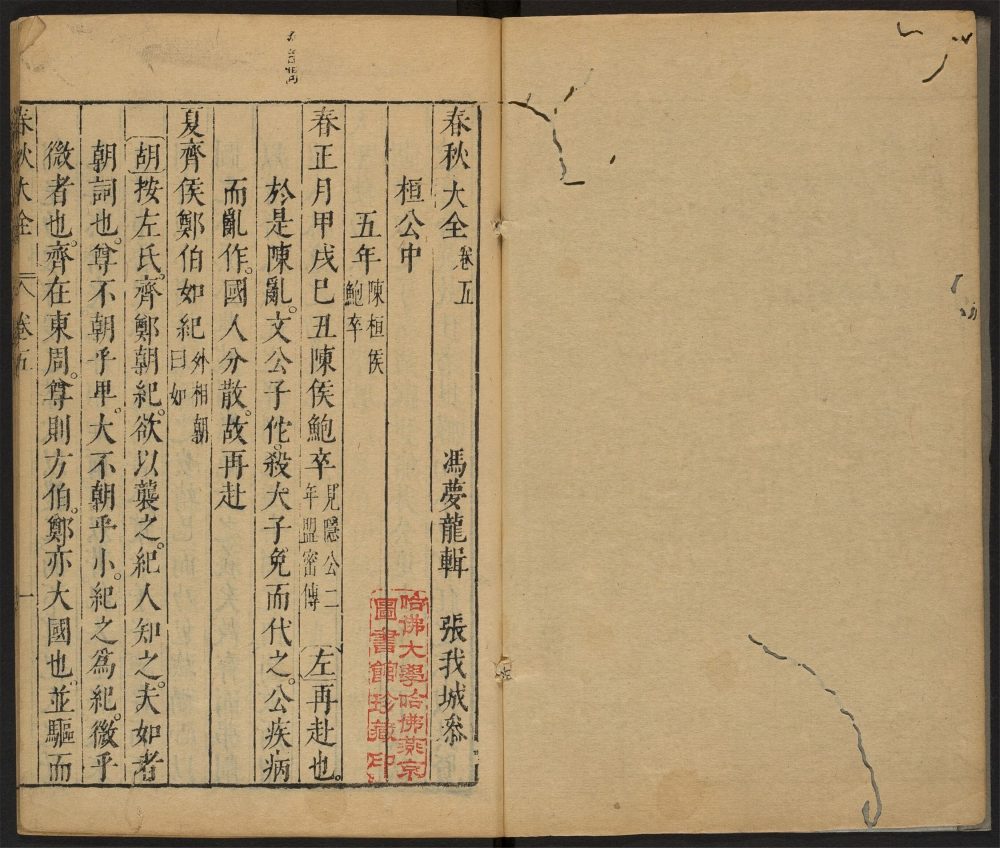 春秋大全 卷五 馮夢龍輯 張我城叅
桓公中
五年 陳桓侯鮑卒
春正月甲戌巳丑陳侯鮑卒 見隱公二年盟密傳 左再赴也。
於是陳亂。文公子佗。殺大子免而代之。公疾病
而亂作。國人分散。故再赴
夏齊侯鄭伯如紀 外相朝曰如
胡按左氏。齊鄭朝紀。欲以襲之。紀人知之。夫如者
朝詞也。尊不朝乎卑。大不朝乎小。紀之爲紀。微乎
微者也。齊在東周。尊則方伯。鄭亦大國也。並驅而
春秋大全 卷五 一
哈佛大學哈佛燕京
圖書館珍藏印